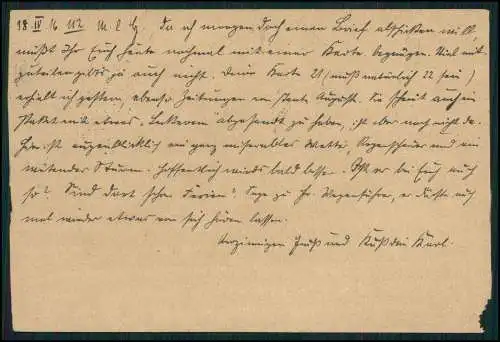 18 IV 16 112 M. l. Da ich morgen doch einen Brief abschicken will,
müßt Ihr Euch heute nochmal mit einer Karte begnügen. Viel mit-
zuteilen gibts ja auch nicht. Deine Karte 21 (muß natürlich 22 sein)
erhielt ich gestern, ebenso Zeitungen von Tante Auguste. Sie scheint auch ein
Paket mit etwas "Leckerem" abgesandt zu haben, ist aber noch nicht da.
Hier ist augenblicklich ein ganz miserables Wetter, Regenschauer und ein
wütender Sturm. Hoffentlich wirds bald besser. Ist es bei Euch auch
so? Sind dort schon Ferien? Sage zu Hr. Wegenführer, er dürfte auch
mal wieder etwas von sich hören lassen.
Herzinnigen Gruß und Kuß Dein Karl.